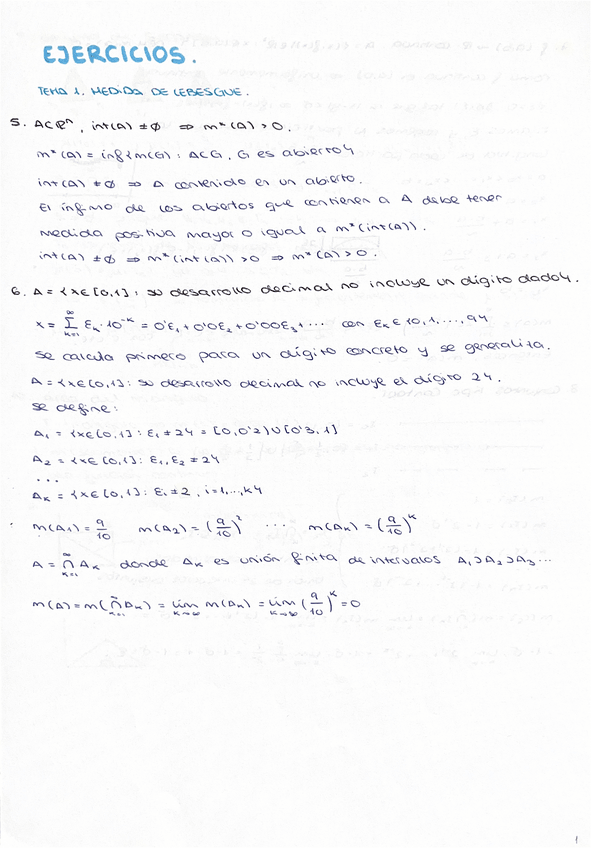 EJERCICIOS.
TEMA 1. MEDIDA DE LEBESGUE.
5. A⊂ℝⁿ, int(A) ≠ ∅ ⇒ m*(A) > 0.
m*(A) = inf{m(G) : A⊂G, G es abierto}
int(A) ≠ ∅ ⇒ A contenido en un abierto.
El ínfimo de los abiertos que contienen a A debe tener
medida positiva mayor o igual a m*(int(A)).
int(A) ≠ ∅ ⇒ m*(int(A)) > 0 ⇒ m*(A) > 0.
6. A = {x∈[0,1] : su desarrollo decimal no incluye un dígito dado}.
x = ∑_{k=1}^{∞} ε_k · 10^{-k} = 0'ε₁ + 0'0ε₂ + 0'00ε₃ + ··· con ε_k ∈ {0,1,...,9}
Se calcula primero para un dígito concreto y se generaliza.
A = {x∈[0,1] : su desarrollo decimal no incluye el dígito 2}.
Se define:
A₁ = {x∈[0,1] : ε₁ ≠ 2} = [0,0'2)∪[0'3,1]
A₂ = {x∈[0,1] : ε₁, ε₂ ≠ 2}
...
A_k = {x∈[0,1] : εᵢ ≠ 2, i=1,...,k}
m(A₁) = 9/10 m(A₂) = (9/10)² ··· m(A_k) = (9/10)^k
A = ∩_{k=1}^{∞} A_k donde A_k es unión finita de intervalos A₁⊃A₂⊃A₃...
m(A) = m(∩_{k=1}^{∞} A_k) = lim_{k→∞} m(A_k) = lim_{k→∞} (9/10)^k = 0
1